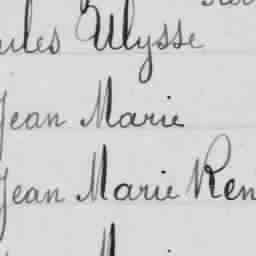 ules Ulysse
Jean Marie
Jean Marie Ren